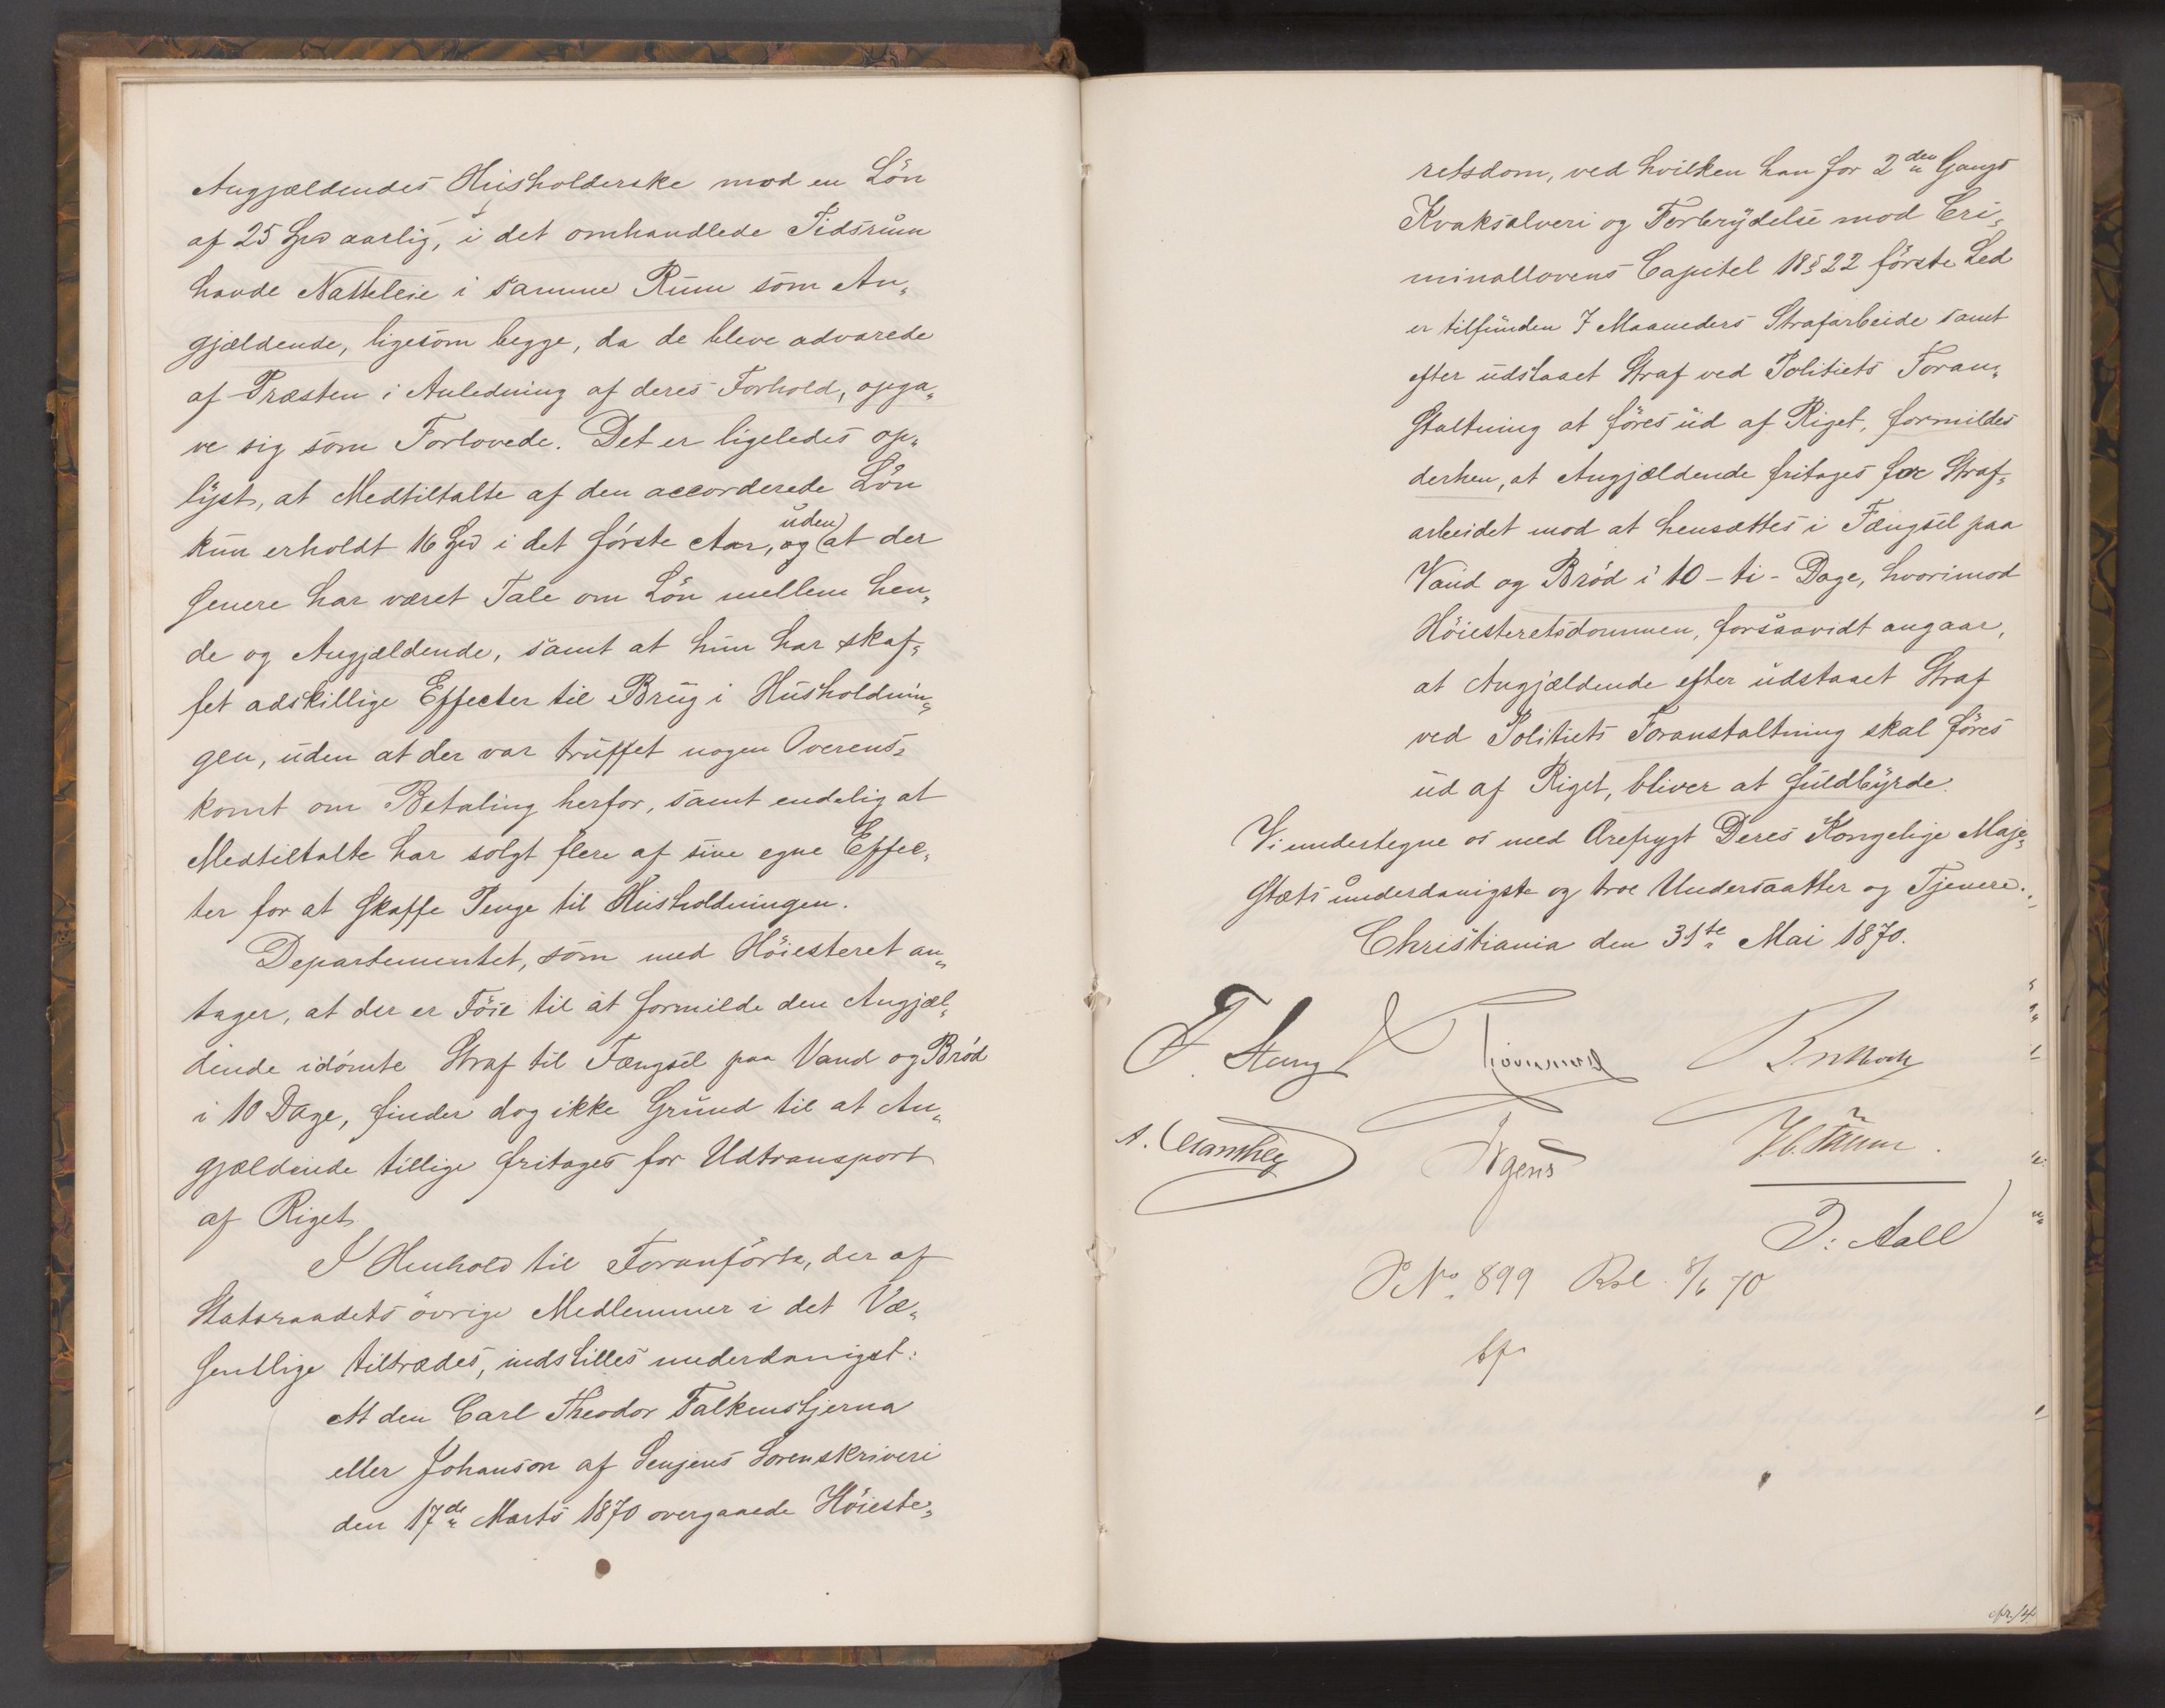 Angjældendes Husholderske mod en Lön
af 25 Spd aarlig, i det omhandlede Tidsrum
havde Natteleie i samme Rum som An„
gjældende, ligesom begge, da de bleve advarede
af Præsten i Anledning af deres Forhold, opga„
ve sig som Forlovede. Det er ligeledes op„
lyst, at Medtiltalte af den accorderede Lön
kun erholdt 16 Spd i det förste Aar, og uden at der
senere har været Tale om Lön mellem hen„
de og Angjældende, samt at hun har skaf„
fet adskillige Effecter til Brug i Husholdnin„
gen, uden at der var truffet nogen Overens„
komt om Betaling herfor, samt endelig at
Medtiltalte har solgt flere af sine egne Effec„
ter for at skaffe Penge til Husholdningen.
Departementet, som med Höiesteret an„
tager, at der er Föie til at formilde den Angjæl„
dende idömte Straf til Fængsel paa Vand og Bröd
i 10 Dage, finder dog ikke Grund til at An„
gjældende tillige fritages for Udtransport
af Riget.
I Henhold til Foranförte, der af
Statsraadets övrige Medlemmer i det Væ„
sentlige tiltrædes, indstilles underdanigst:
At den Carl Theodor Falkenstjerna
eller Johanson af Senjens Sorenskriveri
den 17de Marts 1870 overgaaede Höieste„
retsdom, ved hvilken han for 2den Gangs
Kvaksalveri og Forbrydelse mod Cri„
minallovens Capitel 18 § 22 förste Led
er tilfunden 7 Maaneders Strafarbeide samt
efter udstaaet Straf ved Politiets Foran„
staltning at föres ud af Riget, formildes
derhen, at Angjældende fritages for Straf„
arbeidet mod at hensættes i Fængsel paa
Vand og Bröd i 10 - ti - Dage, hvorimod
Höiesteretsdommen, forsaavidt angaar,
at Angjældende efter udstaaet Straf
ved Politiets Foranstaltning skal föres
ud af Riget, bliver at fuldbyrde.
Vi undertegne os med Ærefrygt Deres Kongelige Maje„
stæts underdanigste og troe Undersaatter og Tjenere.
Christiania den 31te Mai 1870.
F. Stang
Irgens
J. Aall
No. 899 Rsl. 8/6 70